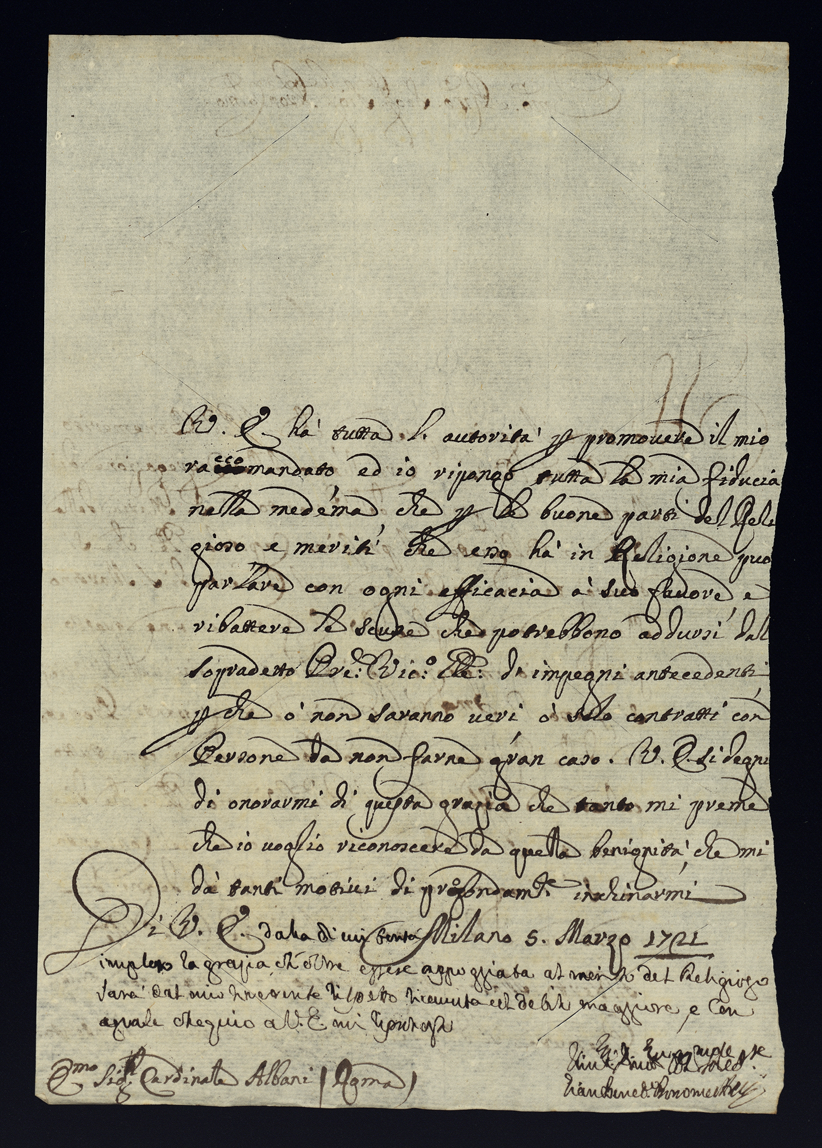 V. E. hà tutta l'autorità p promovere il mio
raccomandato ed io ripongo tutta la mia fiducia
nella medéma che p le buone parti del Reli
gioso e meriti che esso hà in Religione può
parlare con ogni efficacia à suo favore e
ribattere le scuse che potrebbono addursi dal
sopradetto Pre: Vic.o di impegni antecedenti
p che ò non saranno veri ò solo contratti con
Persone da non farne gran caso. V. E. si degni
di onorarmi di questa grazia che tanto mi preme
che io voglio riconoscere da quella benignità che mi
dà tanti motivi di profondam.te inchinarmi
Di V. E. dalla di cui Milano 5. Marzo 1721
imploro la grazia, ch'oltre essere appoggiata al merito del Religioso
sarà dal mio riverente rispetto ricevuta col debito maggiore, e con
a V. E. mi
Emo Sig.r Cardinale Albani (Roma)